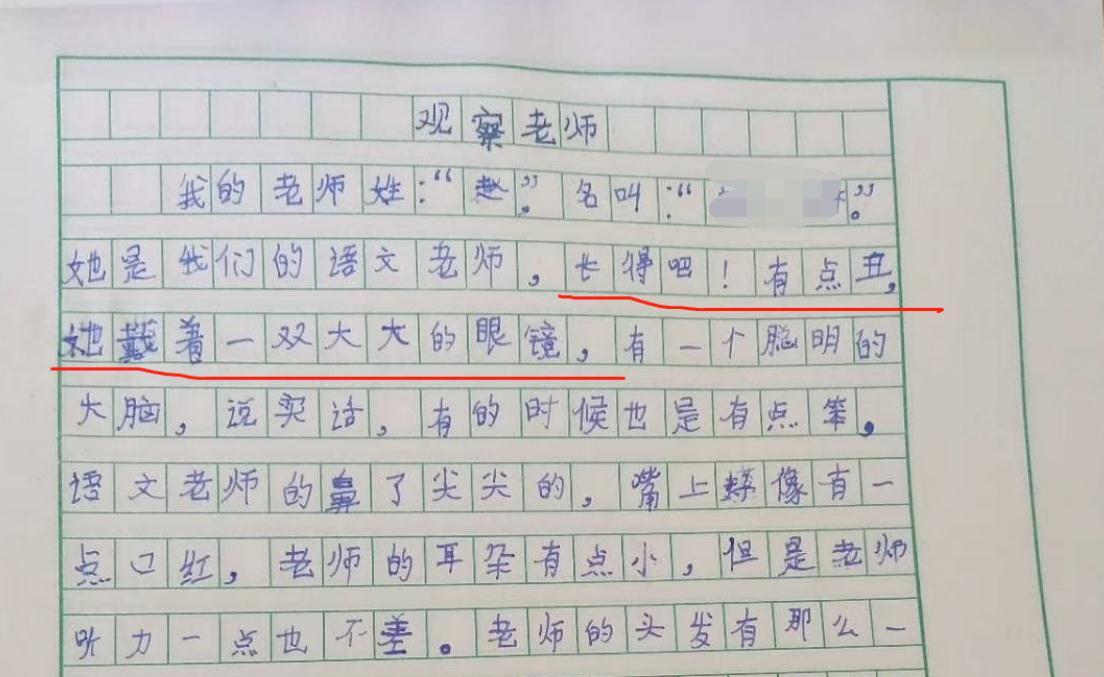 观察老师
我的老师姓：“赵”。名叫：“。”
她是我们的语文老师，长得吧！有点丑，
她戴着一双大大的眼镜，有一个聪明的
大脑，说实话，有的时候也是有点笨。
语文老师的鼻了尖尖的，嘴上好像有一
点口红，老师的耳朵有点小，但是老师
听力一点也不差。老师的头发有那么一